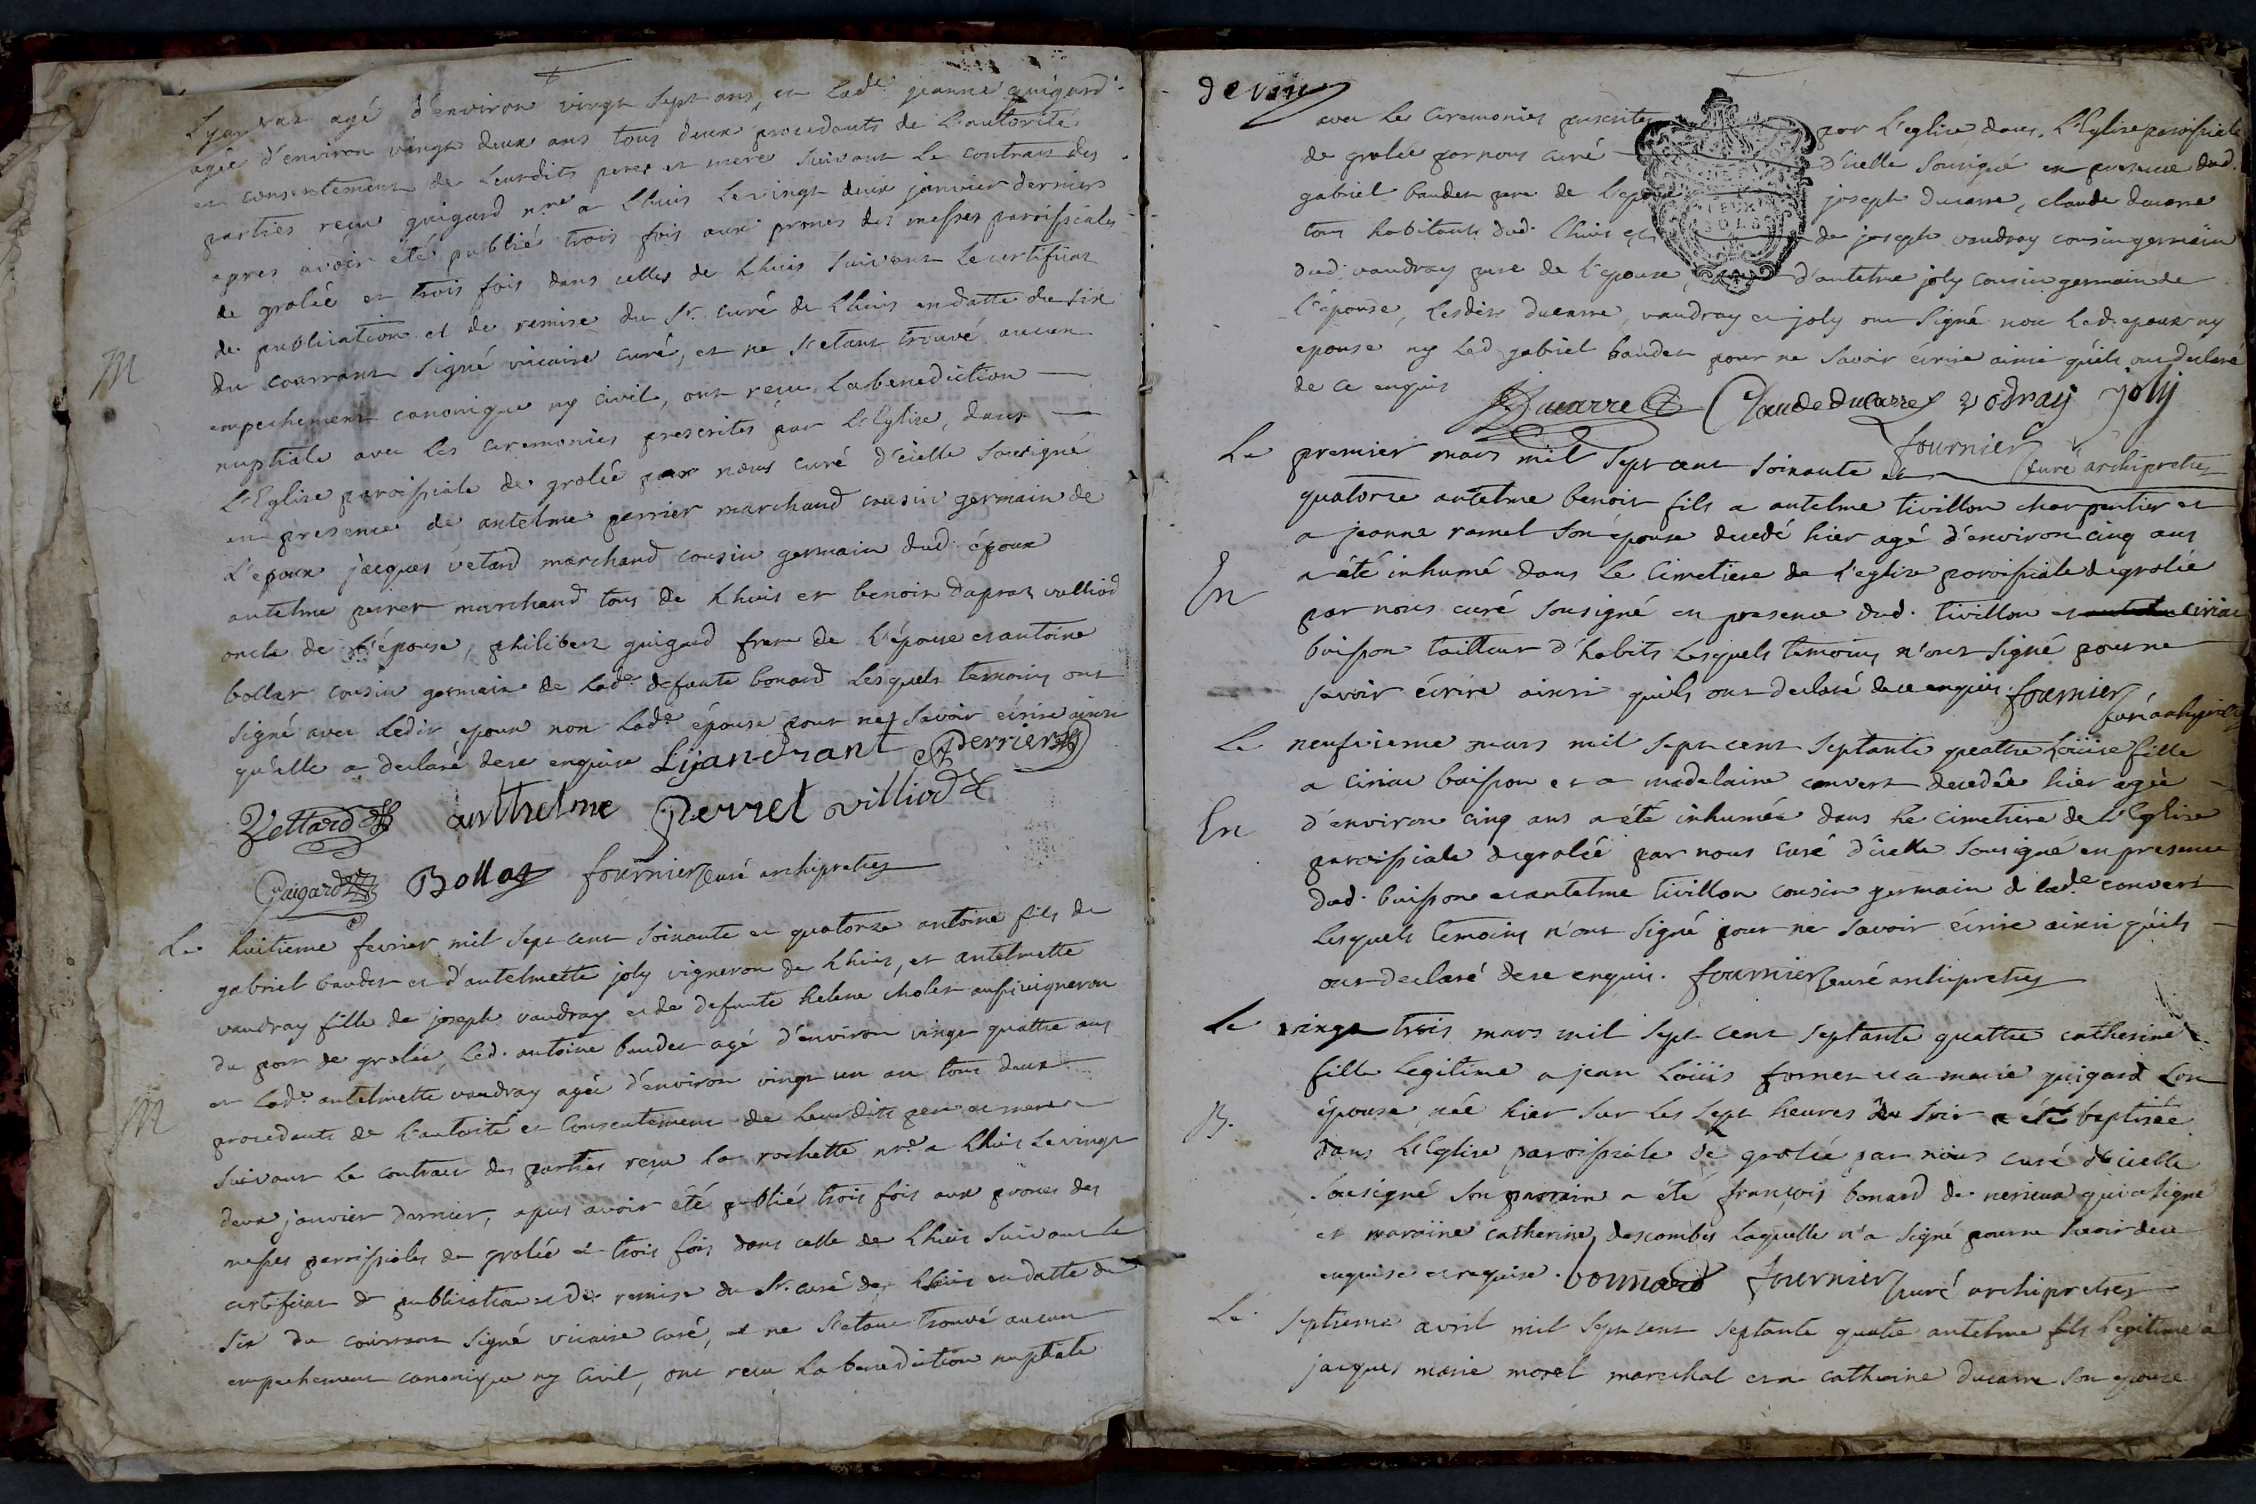 Lyandras agé d'environ vingt sept ans, et lad.e jeanne guigard
agée d'environ vingt deux ans tous deux procedants de l'autorité
et consentement de leurdits peres et mere suivant le contrat des
parties reçu guigard n.re a Lhuis le vingt deux janvier dernier
apres avoir été publié trois fois aux prones des messes paroissiales
de grolée et trois fois dans celles de Lhuis suivant le certificat
de publication et de remise du Sr. curé de Lhuis en datte du six
du courrant signé vicaire curé, et ne s'etant trouvé aucun
M
empechement canonique ny civil, ont reçu la benediction
nuptiale avec les ceremonies prescrites par l'Eglise, dans
L'Eglise paroissiale de grolée par nous curé d'icelle sousigné
en presence de antelme perrier marchand cousin germain de
L'epoux jacques vetard marchand cousin germain dud. époux
antelme perret marchand tous de Lhuis et benoit dapraz vulliod
oncle de l'épouse, philibert guigard frere de l'épouse et antoine
bollat cousin germain de lad.e defunte bonard lesquels temoins ont
signé avec ledit epoux non lad.e épouse pour ne savoir écrire ainsi
qu'elle a declaré de ce enquise Lijandrant Perrier
Vettard anthelme Perret villiod
Guigard Bollat fournier curé archipretre
Le huitieme fevrier mil sept cent soixante et quatorze antoine fils de
gabriel baudet et d'antelmette joly vigneron de Lhuis, et antelmette
vaudray fille de joseph vaudray et de defunte helene cholet aussi vigneron
du port de grolée, led. antoine baudet agé d'environ vingt quattre ans
et lad.e antelmette vaudray agée d'environ vingt un an tous deux
M
procedants de l'autorité et consentement de leurdits pere et mere
suivant le contract des parties reçu la rochette n.re a Lhuis le vingt
deux janvier dernier, apres avoir été publié trois fois aux prones des
messes paroissiales de grolée et trois fois dans celle de Lhuis suivant le
certificat de publication et de remise du Sr. curé de Lhuis en datte du
six du courrant signé vicaire curé, et ne s'etant trouvé aucun
empechement canonique ny civil, ont reçu la benediction nuptiale
avec les ceremonies prescrites par l'eglise dans l'Eglise paroissiale
de grolée par nous curé d'icelle sousigné en presence dud.
gabriel baudet pere de l'epoux joseph ducarre, claude ducarre
tous habitants dud. Lhuis et de joseph vaudray cousin germain
dud. vaudray pere de l'epouse, d'antelme joly cousin germain de
l'épouse, lesdits ducarre, vaudray et joly ont signé non led. epoux ny
epouse ny led. gabriel baudet pour ne savoir écrire ainsi qu'ils ont declaré
de ce enquis Ducarre Claude ducarre vodray joly
fournier curé archipretre
Le premier mars mil sept cent soixante et
quatorze antelme benoit fils a antelme tivillon charpentier et
a jeanne ramel son épouse decedé hier agé d'environ cinq ans
En
a été inhumé dans le cimetiere de l'eglise paroissiale de grolée
par nous curé sousigné en presence dud. tivillon et ciriac
buisson tailleur d'habits lesquels temoins n'ont signé pour ne
savoir écrire ainsi qu'ils ont declaré de ce enquis. fournier
curé archipretre
Le neufvieme mars mil sept cent septante quattre Loüise fille
a ciriac buisson et a madelaine convert decedée hier agée
En
d'environ cinq ans a été inhumée dans le cimetiere de l'Eglise
paroissiale de grolée par nous curé d'icelle sousigné en presence
dud. buisson et antelme tivillon cousin germain d lad.e convert
lesquels temoins n'ont signé pour ne savoir écrire ainsi qu'ils
ont declaré de ce enquis. fournier curé archipretre
Le vingt trois mars mil sept cent septante quattre catherine
fille legitime a jean Loüis fornet et a marie guigard son
B.
épouse née hier sur les sept heures du soir a été baptisée
dans l'Eglise paroissiale de grolée par nous curé d'icelle
sousigné son parrain a été françois bonard de nerieux qui a signé
et maraine catherine descombes laquelle n'a signé pour ne savoir de ce
enquise et requise. bonnard fournier curé archipretre
Le septieme avril mil sept cent septante quatre antelme fils legitime a
jacques marie morel marechal et a catherine ducarre son epouse